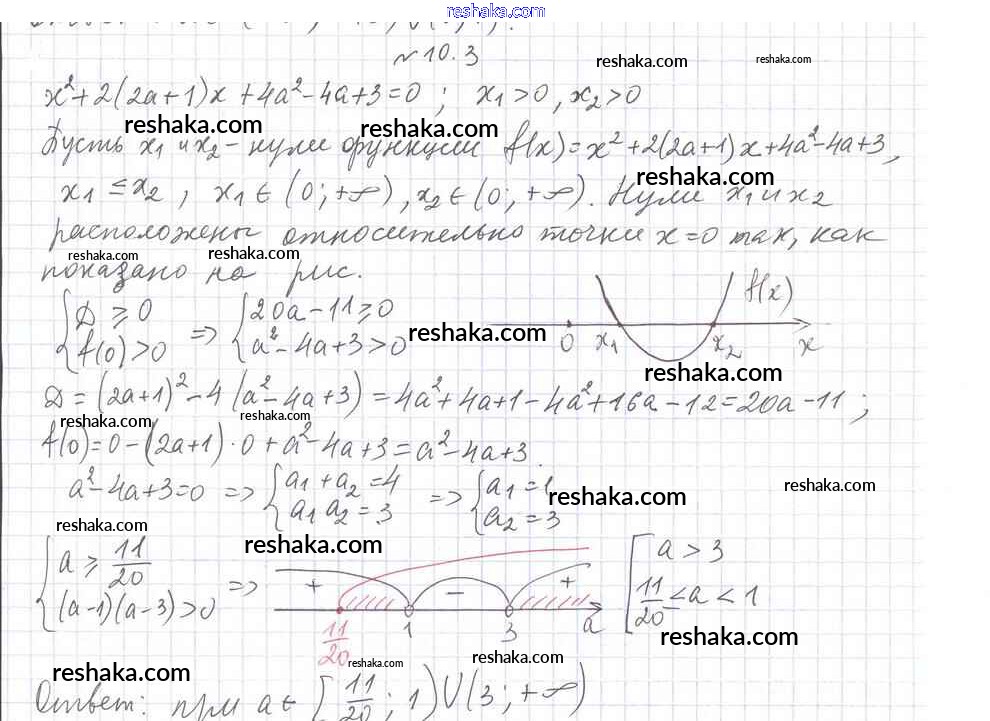 reshaka.com
№10.3
reshaka.com
reshaka.com
x²+2(2a+1)x+4a²-4a+3=0; x₁>0, x₂>0
reshaka.com
reshaka.com
Пусть x₁ и x₂ - нули функции f(x)=x²+2(2a+1)x+4a²-4a+3,
reshaka.com
x₁≤x₂, x₁∈(0;+∞), x₂∈(0;+∞). Нули x₁ и x₂
расположены относительно точки x=0 так, как
reshaka.com
reshaka.com
показано на рис.
{D≥0 => {20a-11≥0 f(x)
{f(0)>0 {a²-4a+3>0 0 x₁ x₂ x
reshaka.com
reshaka.com
D=(2a+1)²-4(a²-4a+3)=4a²+4a+1-4a²+16a-12=20a-11;
reshaka.com
reshaka.com
f(0)=0-(2a+1)·0+a²-4a+3=a²-4a+3.
a²-4a+3=0 => {a₁+a₂=4 => {a₁=1
{a₁a₂=3 {a₂=3
reshaka.com
reshaka.com
reshaka.com
reshaka.com
{a≥11/20 => + - + [a>3
{(a-1)(a-3)>0 11/20 1 3 a [11/20≤a<1
reshaka.com
reshaka.com
reshaka.com
reshaka.com
Ответ: при a∈[11/20;1)∪(3;+∞)